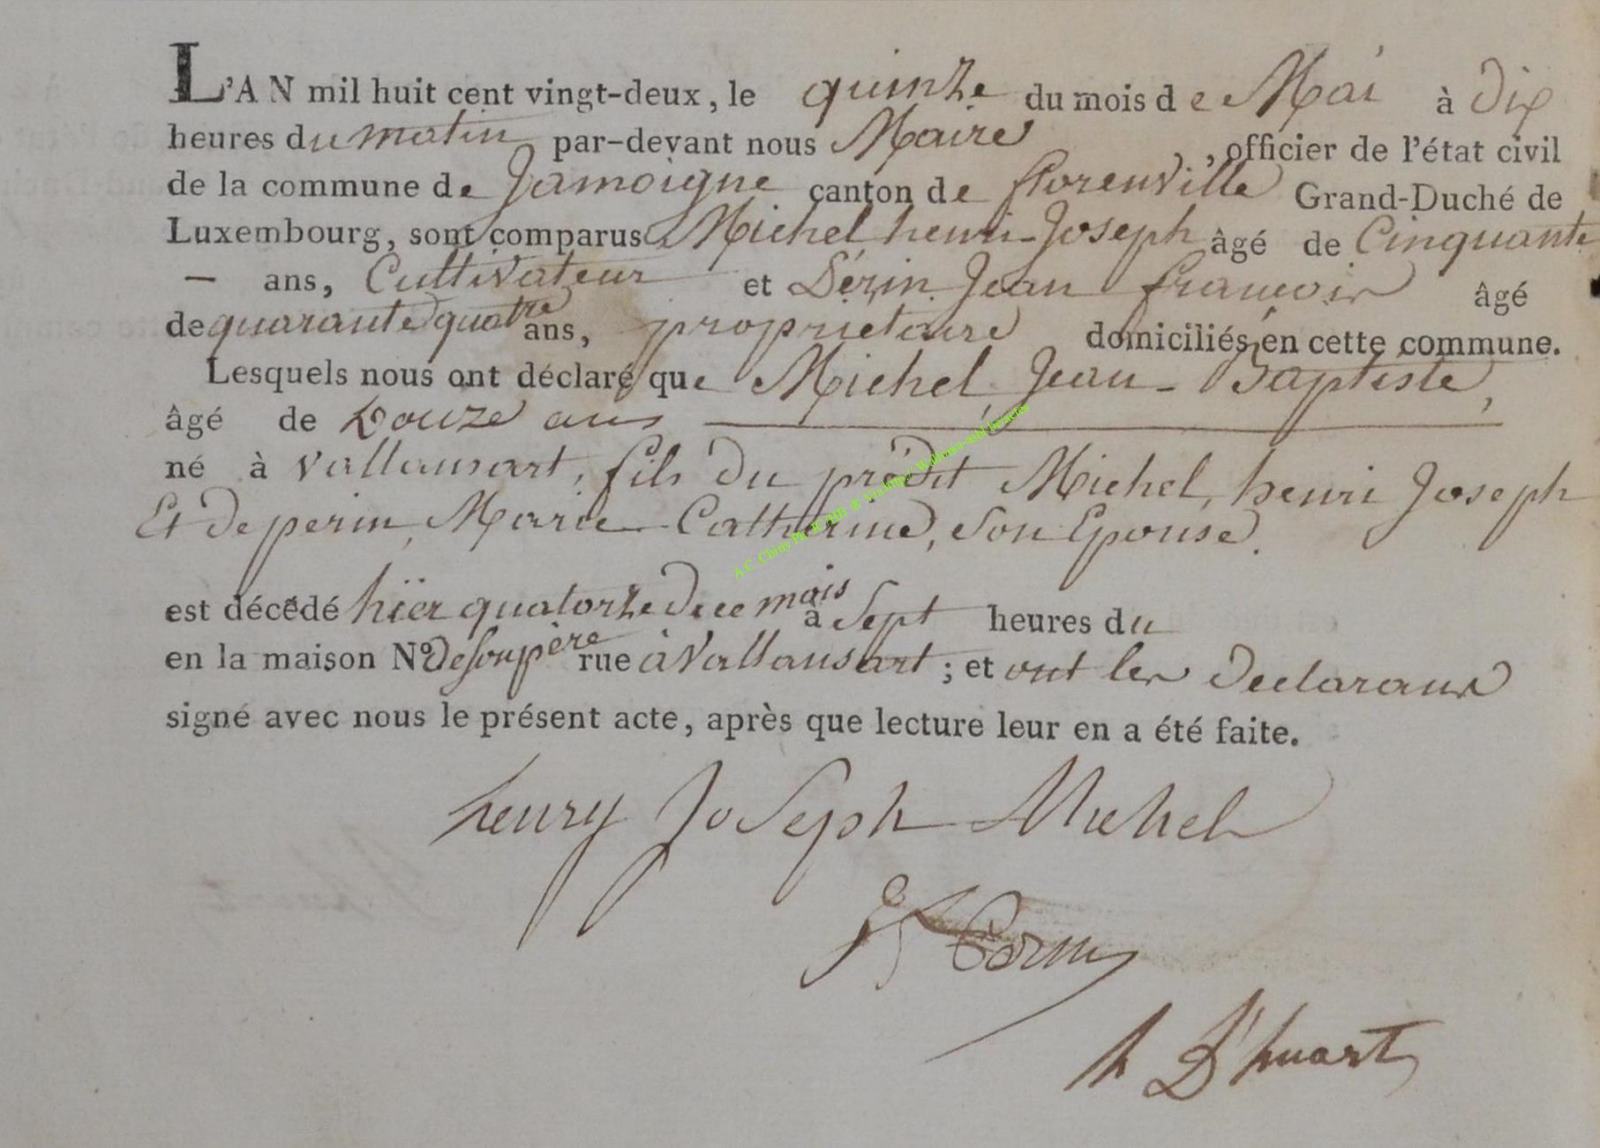 L'AN mil huit cent vingt-deux, le quinze du mois de Mai à dix
heures du matin par-devant nous Maire , officier de l'état civil
de la commune de Jamoigne canton de florenville Grand-Duché de
Luxembourg, sont comparus Michel henri-Joseph âgé de Cinquante
— ans, Cultivateur et Périn Jean francois âgé
de quarante quatre ans, proprietaire domiciliés en cette commune.
Lesquels nous ont déclaré que Michel, Jean-Baptiste,
âgé de Douze ans
né à Vallansart, fils du prédit Michel, henri Joseph
Et de perin, Marie Catherine, son Epouse.
est décédé hïer quatorze de ce mois à Sept heures du
en la maison N° de son père rue à Vallansart ; et ont les Declarans
signé avec nous le présent acte, après que lecture leur en a été faite.
henry Joseph Michel
D'huart